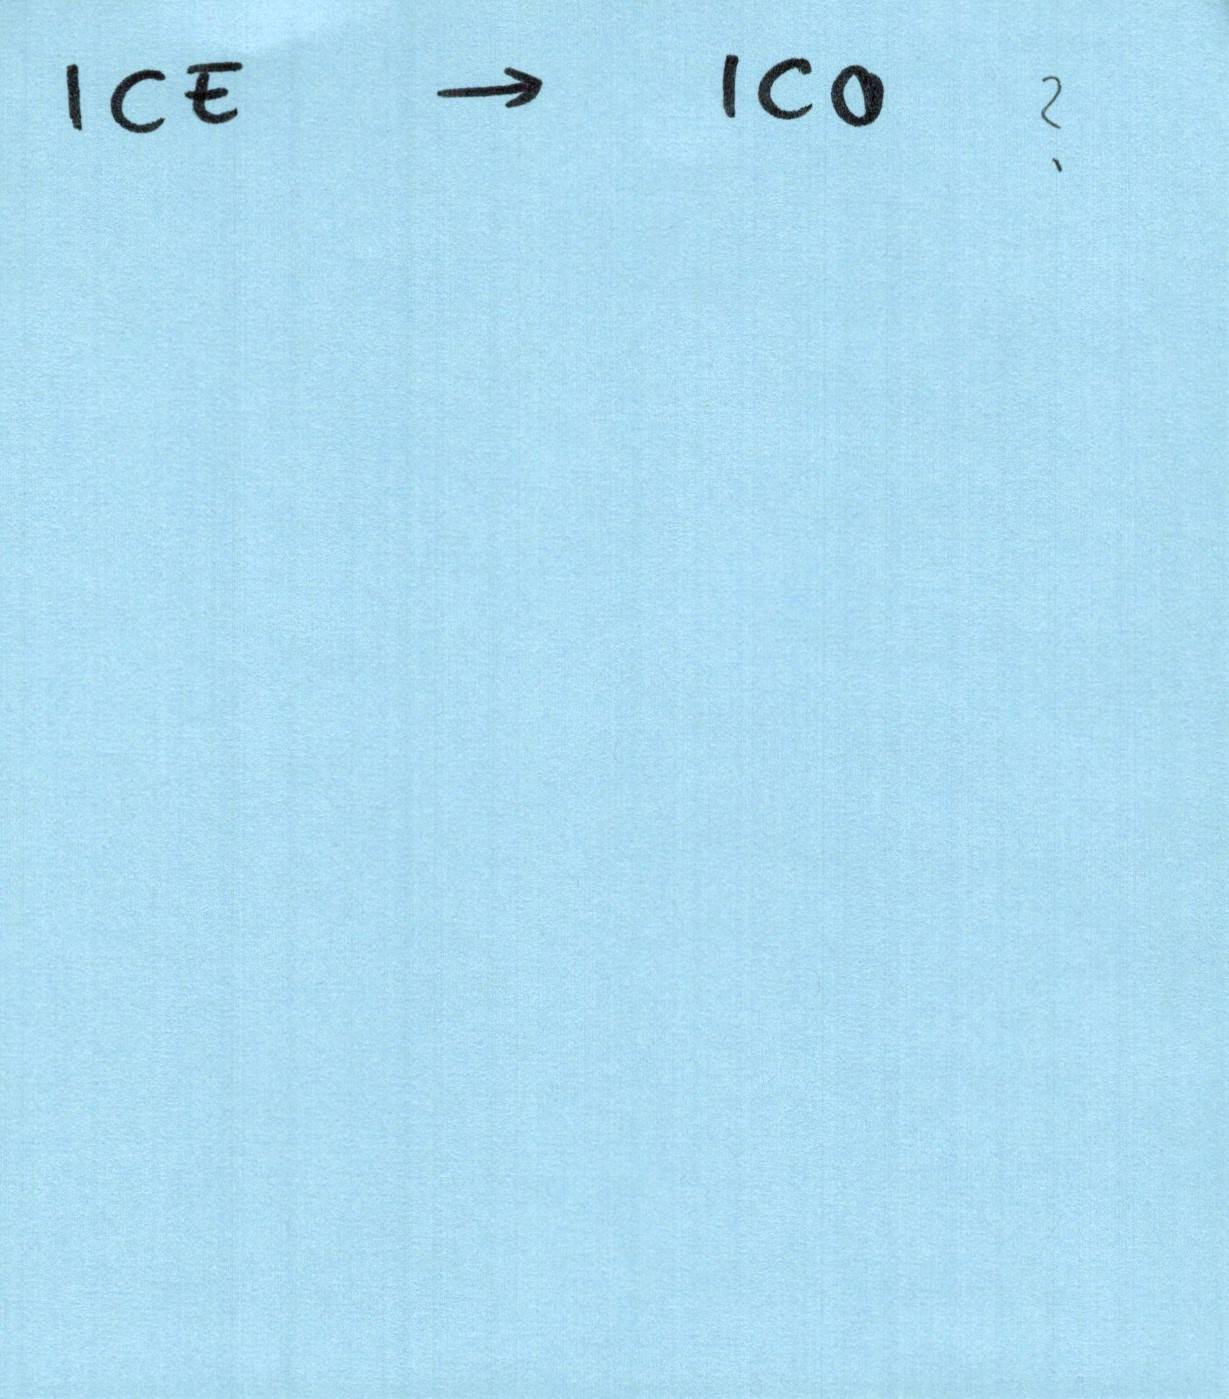 ICE → ICO ?